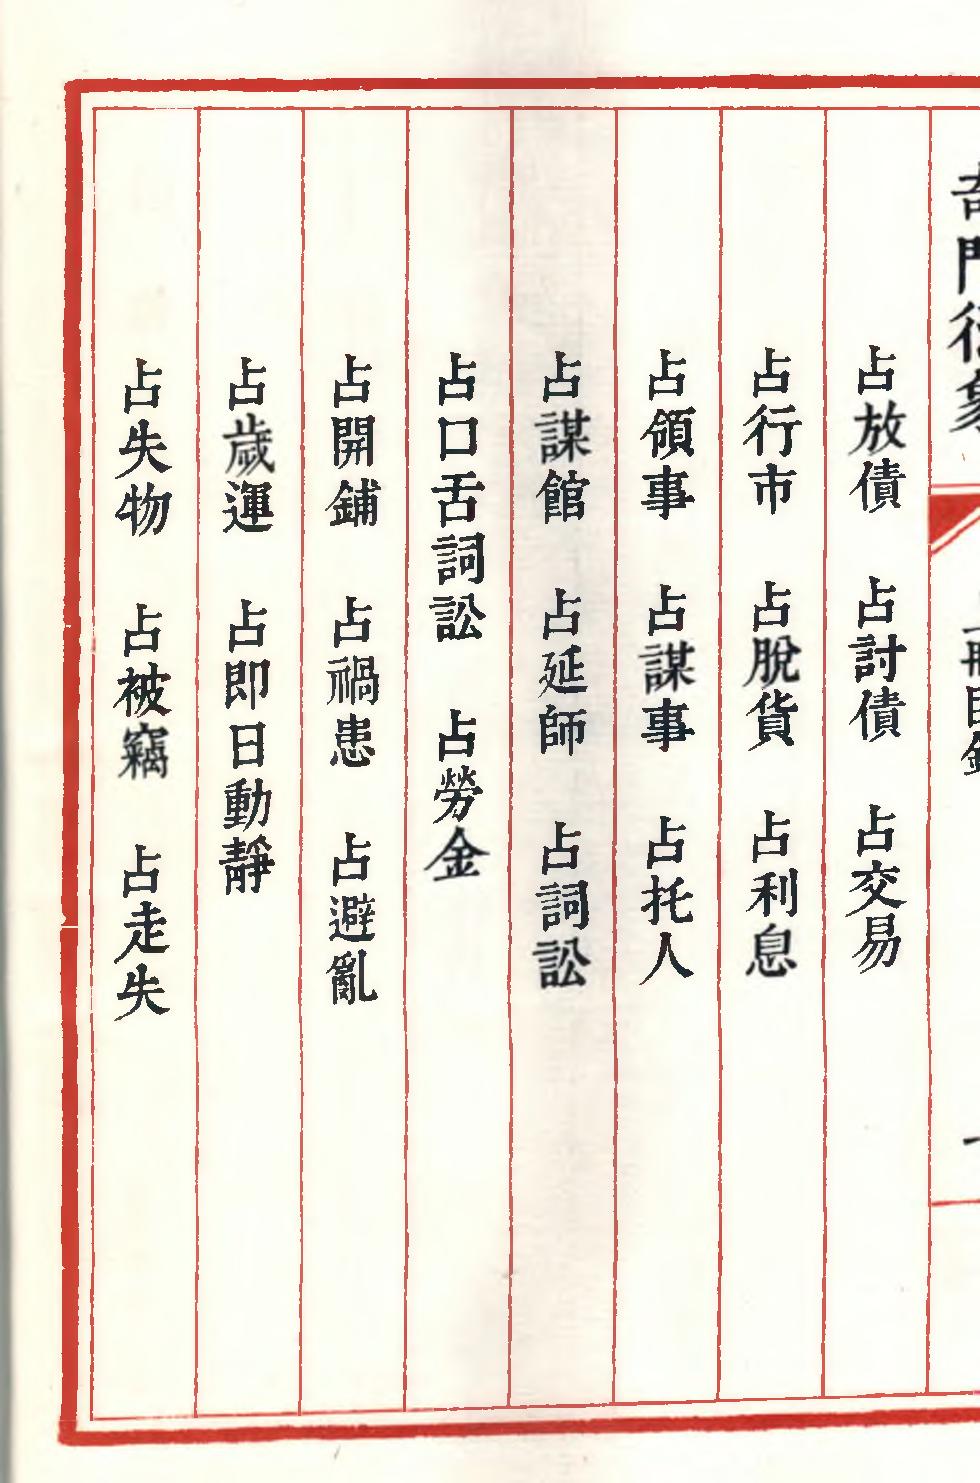 奇門衍象
占放債　占討債　占交易
占行市　占脫貨　占利息
占領事　占謀事　占托人
占謀館　占延師　占詞訟
占口舌詞訟　占勞金
占開鋪　占禍患　占避亂
占歲運　占即日動靜
占失物　占被竊　占走失